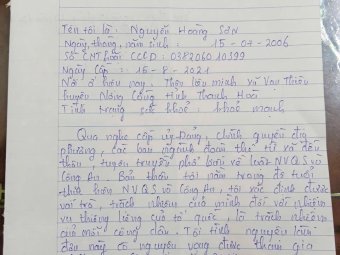 Tên tôi là: Nguyễn Hoàng Sơn
Ngày, tháng, năm sinh: 15-07-2006
Số CCCD: 038206010399
Ngày cấp: 15-8-2021
Nơi ở hiện nay: Thôn liên minh xã Vạn Thiện
huyện Nông Cống tỉnh Thanh Hoá
Tình trạng sức khoẻ: khoẻ mạnh
Qua nghe cấp uỷ Đảng, chính quyền địa
phương, các ban ngành đoàn thể từ xã đến
thôn, tuyên truyền phổ biến về luật NVQS và
Công An. Bản thân tôi nằm trong độ tuổi
thực hiện NVQS và Công An, tôi xác định được
vai trò, trách nhiệm của mình đối với nhiệm
vụ thiêng liêng của tổ quốc, là trách nhiệm
của mỗi công dân. Tôi tình nguyện
đơn này có nguyện vọng được tham gia